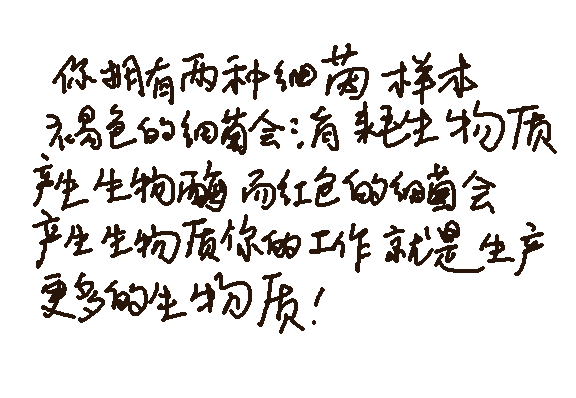 你拥有两种细菌样本
褐色的细菌会消耗生物质
产生生物酶而红色的细菌会
产生生物质你的工作就是生产
更多的生物质！